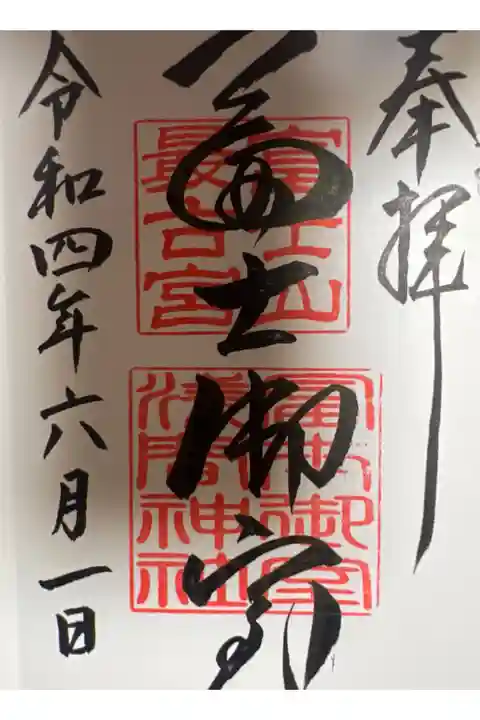 奉拝
富士御室
富士山
最古宮
冨士御室
浅間神社
令和四年六月一日